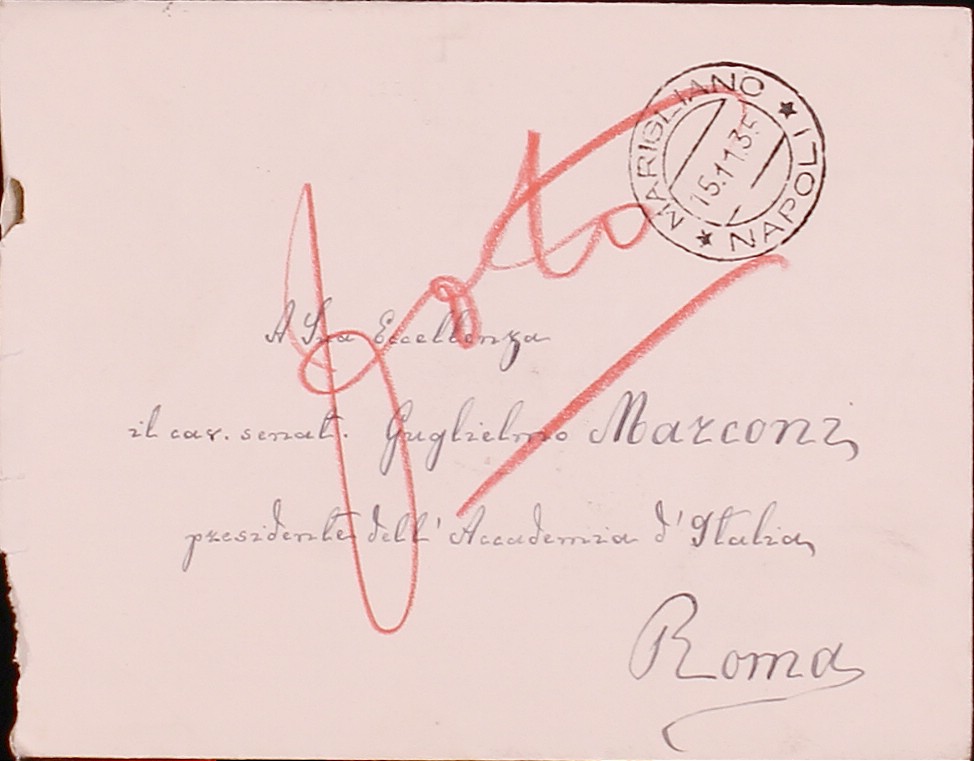 MARIGLIANO ★ NAPOLI ★
15.11.35
A Sua Eccellenza
il cav. senat. Guglielmo Marconi,
presidente dell' Accademia d'Italia,
Roma